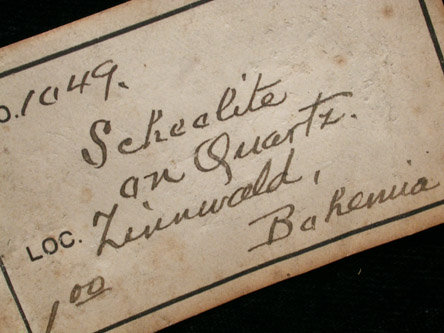 O. 1049.
Scheelite
on Quartz.
LOC. Zinnwald,
Bohemia
1 00